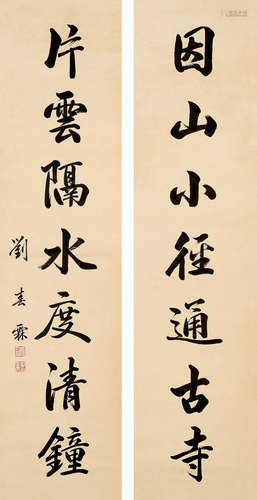 因山小徑通古寺
片雲隔水度清鐘
劉春霖